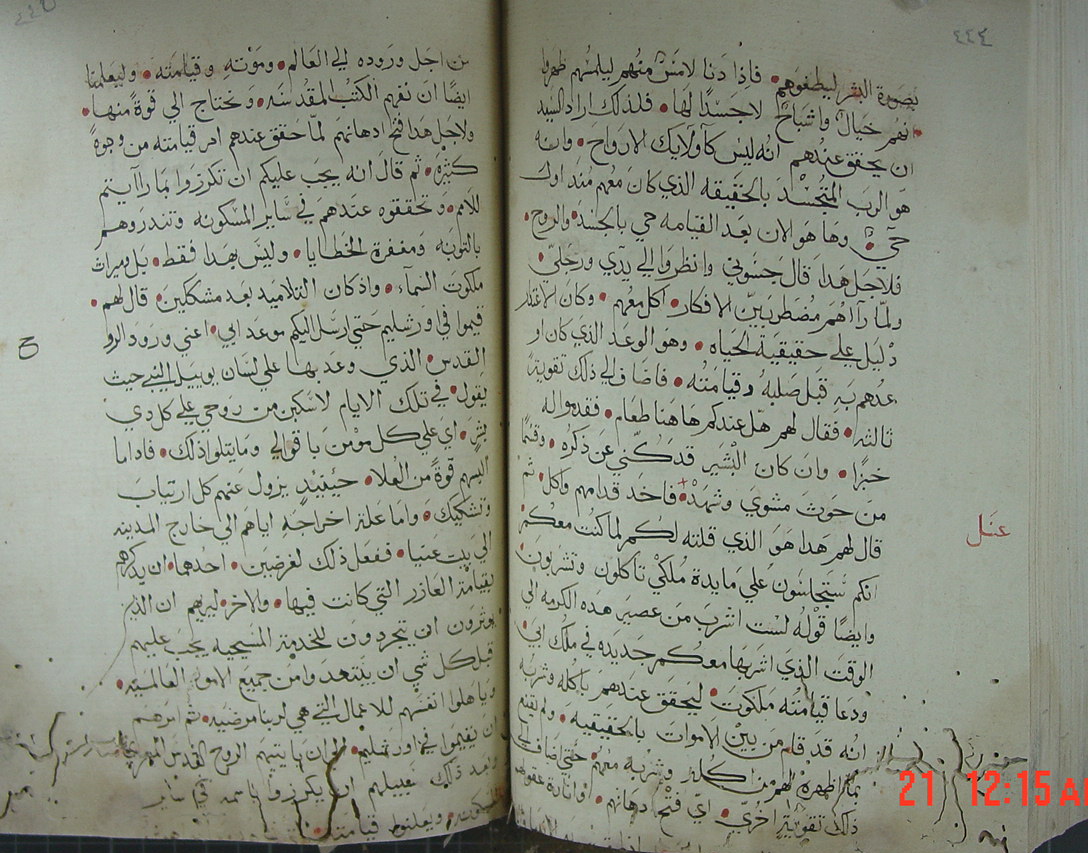 ٤٤٤
بصورة البشر ليطغوهم • فاذا دنا لامس منهم ليلمسهم ظهروا
انهم خيال واشباح لاجسدًا لها • فلذلك اراد السيد
ان يحقق عندهم انه ليس كاولايك الارواح • وانه
هو الرب المتجسد بالحقيقه الذي كان معهم منذ اول
حتي وها هو الان بعد القيامه حي بالجسد والروح •
فلاجل هذا قال جسوني وانظروا الي يدَي ورجلَي •
ولما رااهم مضطربين الافكار • اكل معهم • وكان
دليل علي حقيقية الحياه • وهو الوعد الذي كان
عدهم به قبل صلبه وقيامته • فاضاف الي ذلك تقوية
ثالثه • فقال لهم هل عندكم هاهنا طعام • فقدموا له
خبزًا • وان كان البشير قد كني عن ذكره • وقسمًا
من حوت مشوي وشهد • فاخد قدامهم واكل • ثم
قال لهم هدا هو الذي قلته لكم لما كنت معكم
عسل
انكم ستجلسون علي مايدة ملكي تاكلون وتشربون
وايضًا قوله لست اشرب من عصير هده الكرمه الي
الوقت الذي اشربها معكم جديده في ملك ابي •
ودعا قيامته ملكوت • ليحقق عندهم باكله وشربه
انه قد قام من بين الاموات بالحقيقيه • ولم يقنع
بما اظهره لهم من اكله وشربه معهم حتي اضاف الي
ذلك تقوية اخري • اي فتح ادهانهم • وانارة عقولهم
من اجل وروده الي العالم • وموته وقيامته • وليعلمنا
ايضًا ان نفهم الكتب المقدسه • ونحتاج الي قوة منها •
ولاجل هدا فتح ادهانهم لما حقق عندهم امر قيامته من وجوه
كثيره • ثم قال انه يجب عليكم ان تكرزوا بما راايتم
للامم • وتحققوه عندهم في ساير المسكونه وتندروهم
بالتوبه ومغفرة الخطايا • وليس بهدا فقط • بل وميراث
ملكوت السماء • واذ كان التلاميد بعد مشككين • قال لهم •
قيموا في اورشليم حتي ارسل اليكم موعد ابي • اعني ورود الروح
القدس • الذي وعد بها علي لسان يوييل النبي حيث
يقول • في تلك الايام لاسكبن من روحي علي كل دي
بشر • اي علي كل مومن باقوالي وما يتلوا ذلك • فاداما
البسهم قوة من العلا • حينيدٍ يزول عنهم كل ارتياب
وتشكيك • واما علة اخراجه اياهم الي خارج المدينه
الي بيت عنيا • ففعل ذلك لغرضين • احدهما • ان يدكرهم
بقيامة العازر التي كانت فيها • والاخر • ليريهم ان الذين
يوثرون ان يتجردون للخدمة المسيحيه يجب عليهم
قبل كل شي ان يبتعدوا من جميع الامور العالميه •
ويأهلوا انفسهم للاعمال التي هي لربنا مرضيه • ثم امرهم
ان يقيموا في اورشليم • الي ان ياتيهم الروح القدس
وبعد ذلك سبيلهم ان يكرزوا باسمه في ساير
المسكونه • ويعلنوا قيامته
ح
21 12:15 AM